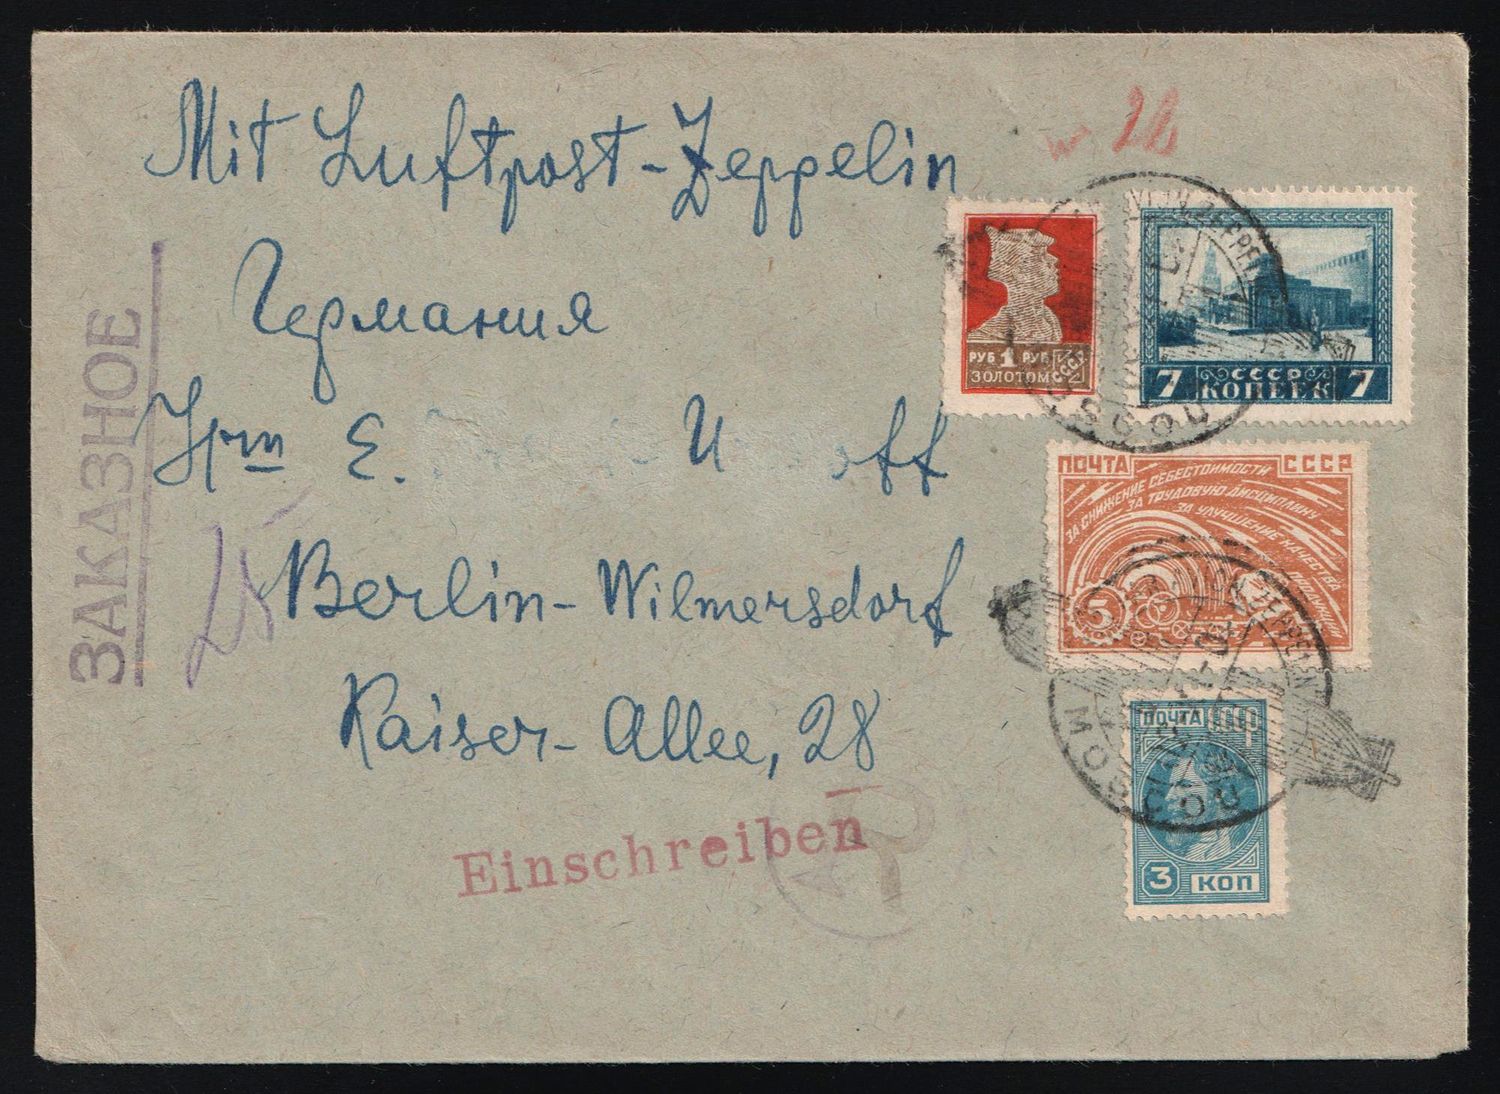 Mit Luftpost-Zeppelin
Германия
Hrn E. U off
Berlin-Wilmersdorf
Kaiser-Allee, 28
ЗАКАЗНОЕ
25
Einschreiben
A R
26
РУБ 1 РУБ
ЗОЛОТОМ
СССР
7 СССР 7
КОПЕЕК
ПОЧТА СССР
ЗА СНИЖЕНИЕ СЕБЕСТОИМОСТИ
ЗА ТРУДОВУЮ ДИСЦИПЛИНУ
ЗА УЛУЧШЕНИЕ КАЧЕСТВА ПРОДУКЦИИ
5
ПОЧТА СССР
3 КОП
AVION ZEPPELIN
MOSCOU
AVION ZEPPELIN
MOSCOU